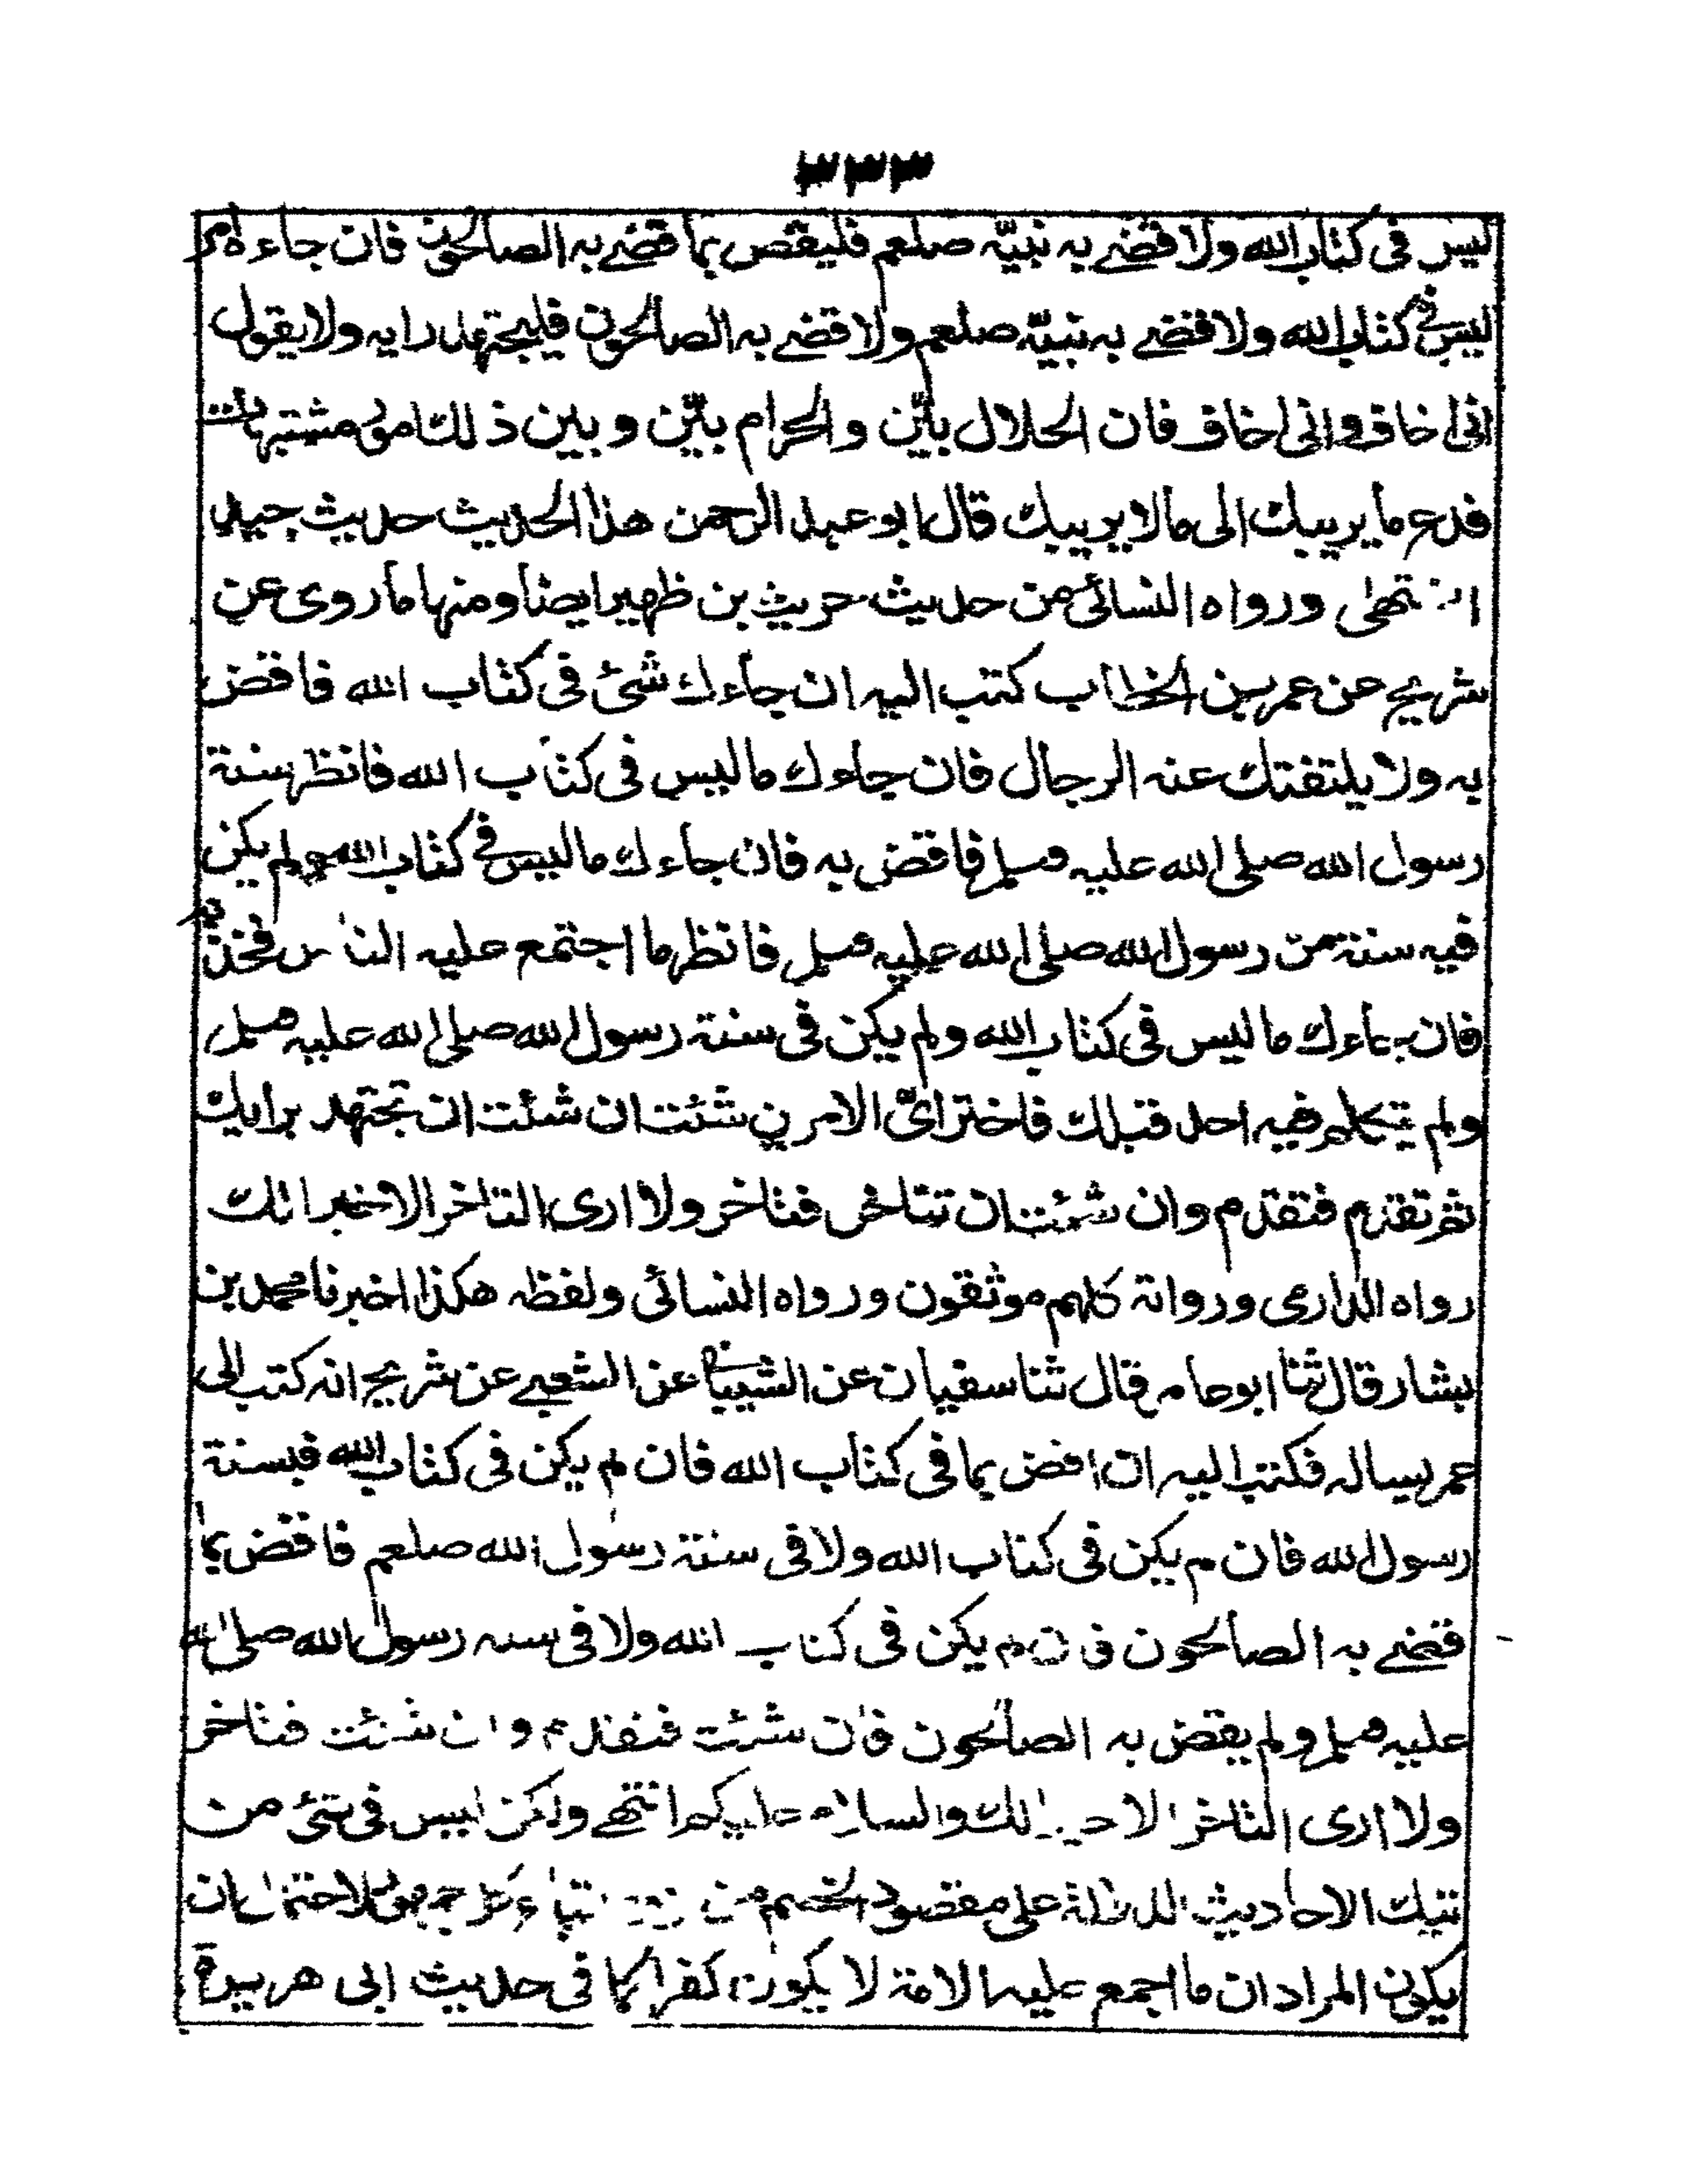 ٣٣٣
ليس فى كتاب الله ولا قضے به نبيّه صلعم فليقض بما قضے به الصالحون فان جاءه امر
ليس فے كتاب الله ولا قضے به نبيّه صلعم ولا قضے به الصالحون فليجتهد رايه ولا يقول
انى اخاف وانى اخاف فان الحلال بيّن والحرام بيّن وبين ذلك امور مشتبهات
فدع ما يريبك الى مالا يريبك قال ابو عبد الرحمن هذا الحديث حديث جيد
انتهى ورواه النسائى من حديث حريث بن ظهير ايضا ومنها ما روى عن
شريح عن عمر بن الخطاب كتب اليه ان جاءك شئ فى كتاب الله فاقض
به ولا يلتفتك عنه الرجال فان جاءك ما ليس فى كتاب الله فانظر سنة
رسول الله صلى الله عليه وسلم فاقض به فان جاءك ما ليس فے كتاب الله ولم يكن
فيه سنة من رسول الله صلى الله عليه وسلم فانظر ما اجتمع عليه الناس فخذ به
فان جاءك ما ليس فى كتاب الله ولم يكن فى سنة رسول الله صلى الله عليه وسلم
ولم يتكلم فيه احد قبلك فاختر اىّ الامرين شئت ان شئت ان تجتهد برايك
ثم تقدم فتقدم وان شئت ان تتاخر فتاخر ولا ارى التاخر الا خيرا لك
رواه الدارمى ورواته كلهم موثقون ورواه النسائى ولفظه هكذا اخبرنا محمد بن
بشار قال ثنا ابو عامر قال ثنا سفيان عن الشيبانے عن الشعبے عن شريح انه كتب الى
عمر يساله فكتب اليه ان اقض بما فى كتاب الله فان لم يكن فى كتاب الله فبسنة
رسول الله فان لم يكن فى كتاب الله ولا فى سنة رسول الله صلعم فاقض بما
قضے به الصالحون فان لم يكن فى كتاب الله ولا فى سنة رسول الله صلى الله
عليه وسلم ولم يقض به الصالحون فان شئت فتقدم وان شئت فتاخر
ولا ارى التاخر الا خيرا لك والسلام عليكم انتهے ولكن ليس فى شئ من
تيك الاحاديث الدلالة على مقصود الخصم من لاحتمال ان
يكون المراد ان ما اجمع عليه الامة لا يكون كفرا كما فى حديث ابى هريرة